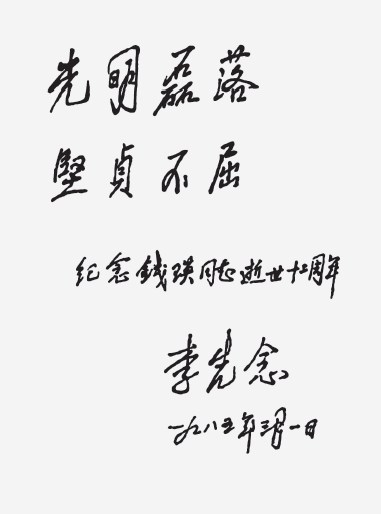 光明磊落
坚贞不屈
纪念钱瑛同志逝世十二周年
李先念
一九八五年三月一日